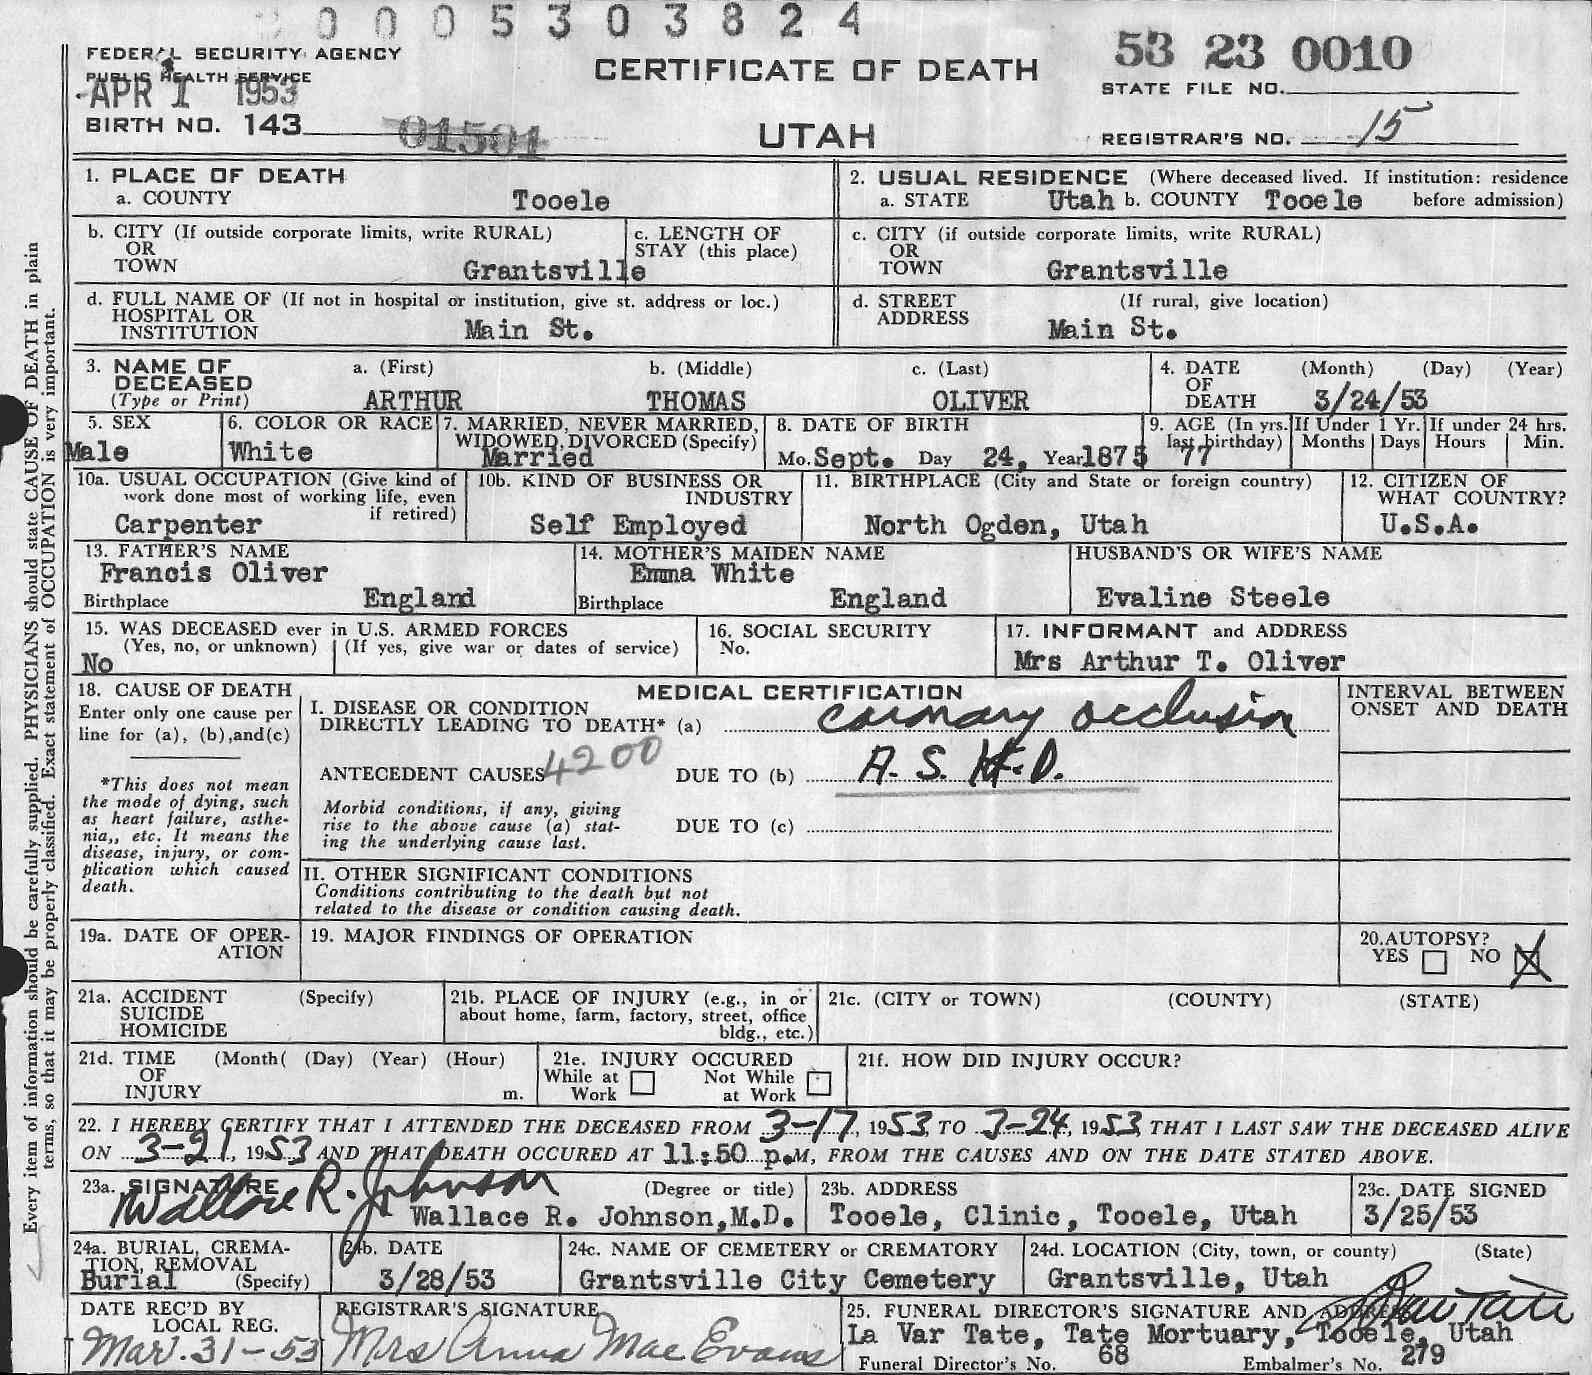 0005303824
FEDERAL SECURITY AGENCY
PUBLIC HEALTH SERVICE
APR 1 1953
BIRTH NO. 143 01501
CERTIFICATE OF DEATH
UTAH
53 23 0010
STATE FILE NO.
REGISTRAR'S NO. 15
Every item of information should be carefully supplied. PHYSICIANS should state CAUSE OF DEATH in plain
terms, so that it may be properly classified. Exact statement of OCCUPATION is very important.
1. PLACE OF DEATH
a. COUNTY Tooele
2. USUAL RESIDENCE (Where deceased lived. If institution: residence
a. STATE Utah b. COUNTY Tooele before admission)
b. CITY (If outside corporate limits, write RURAL)
OR
TOWN Grantsville
c. LENGTH OF
STAY (this place)
c. CITY (if outside corporate limits, write RURAL)
OR
TOWN Grantsville
d. FULL NAME OF (If not in hospital or institution, give st. address or loc.)
HOSPITAL OR
INSTITUTION Main St.
d. STREET (If rural, give location)
ADDRESS Main St.
3. NAME OF a. (First) b. (Middle) c. (Last)
DECEASED
(Type or Print) ARTHUR THOMAS OLIVER
4. DATE (Month) (Day) (Year)
OF
DEATH 3/24/53
5. SEX
Male
6. COLOR OR RACE
White
7. MARRIED, NEVER MARRIED,
WIDOWED, DIVORCED (Specify)
Married
8. DATE OF BIRTH
Mo. Sept. Day 24, Year 1875
9. AGE (In yrs.
last birthday)
77
If Under 1 Yr.
Months Days
If under 24 hrs.
Hours Min.
10a. USUAL OCCUPATION (Give kind of
work done most of working life, even
if retired)
Carpenter
10b. KIND OF BUSINESS OR
INDUSTRY
Self Employed
11. BIRTHPLACE (City and State or foreign country)
North Ogden, Utah
12. CITIZEN OF
WHAT COUNTRY?
U.S.A.
13. FATHER'S NAME
Francis Oliver
Birthplace England
14. MOTHER'S MAIDEN NAME
Emma White
Birthplace England
HUSBAND'S OR WIFE'S NAME
Evaline Steele
15. WAS DECEASED ever in U.S. ARMED FORCES
(Yes, no, or unknown) (If yes, give war or dates of service)
No
16. SOCIAL SECURITY
No.
17. INFORMANT and ADDRESS
Mrs Arthur T. Oliver
18. CAUSE OF DEATH
Enter only one cause per
line for (a), (b),and(c)
*This does not mean
the mode of dying, such
as heart failure, asthe-
nia,, etc. It means the
disease, injury, or com-
plication which caused
death.
MEDICAL CERTIFICATION
I. DISEASE OR CONDITION
DIRECTLY LEADING TO DEATH* (a) coronary occlusion
ANTECEDENT CAUSES 4200 DUE TO (b) A. S. H. D.
Morbid conditions, if any, giving
rise to the above cause (a) stat-
ing the underlying cause last.
DUE TO (c)
INTERVAL BETWEEN
ONSET AND DEATH
II. OTHER SIGNIFICANT CONDITIONS
Conditions contributing to the death but not
related to the disease or condition causing death.
19a. DATE OF OPER-
ATION
19. MAJOR FINDINGS OF OPERATION
20.AUTOPSY?
YES NO X
21a. ACCIDENT (Specify)
SUICIDE
HOMICIDE
21b. PLACE OF INJURY (e.g., in or
about home, farm, factory, street, office
bldg., etc.)
21c. (CITY or TOWN) (COUNTY) (STATE)
21d. TIME (Month( (Day) (Year) (Hour)
OF
INJURY m.
21e. INJURY OCCURED
While at Not While
Work at Work
21f. HOW DID INJURY OCCUR?
22. I HEREBY CERTIFY THAT I ATTENDED THE DECEASED FROM 3-17, 1953, TO 3-24, 1953, THAT I LAST SAW THE DECEASED ALIVE
ON 3-21, 1953 AND THAT DEATH OCCURED AT 11:50 p.M, FROM THE CAUSES AND ON THE DATE STATED ABOVE.
23a. SIGNATURE (Degree or title)
Wallace R. Johnson
Wallace R. Johnson,M.D.
23b. ADDRESS
Tooele, Clinic, Tooele, Utah
23c. DATE SIGNED
3/25/53
24a. BURIAL, CREMA-
TION, REMOVAL
Burial (Specify)
24b. DATE
3/28/53
24c. NAME OF CEMETERY or CREMATORY
Grantsville City Cemetery
24d. LOCATION (City, town, or county) (State)
Grantsville, Utah
DATE REC'D BY
LOCAL REG.
Mar. 31-53
REGISTRAR'S SIGNATURE
Mrs Anna Mae Evans
25. FUNERAL DIRECTOR'S SIGNATURE AND ADDRESS
La Var Tate, Tate Mortuary, Tooele, Utah
Funeral Director's No. 68 Embalmer's No. 279